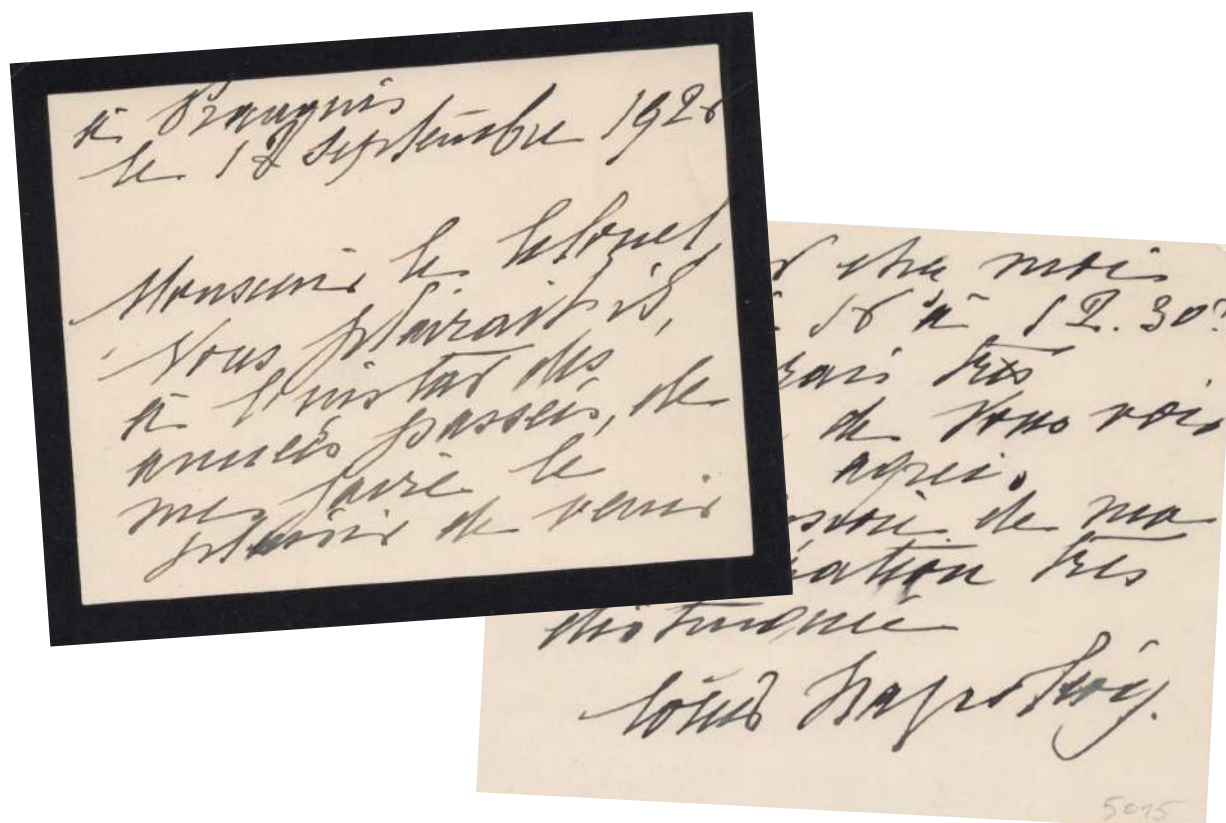 à Prangins
le septembre 1926
Monsieur le Colonel,
Vous plairait-il,
à l'instar des
années passées, de
me faire le
plaisir de venir
chez moi
16 à 12.30?
rais très
de vous voir
agréer,
de ma
ration très
distinguée
Louis Napoléon.
5015